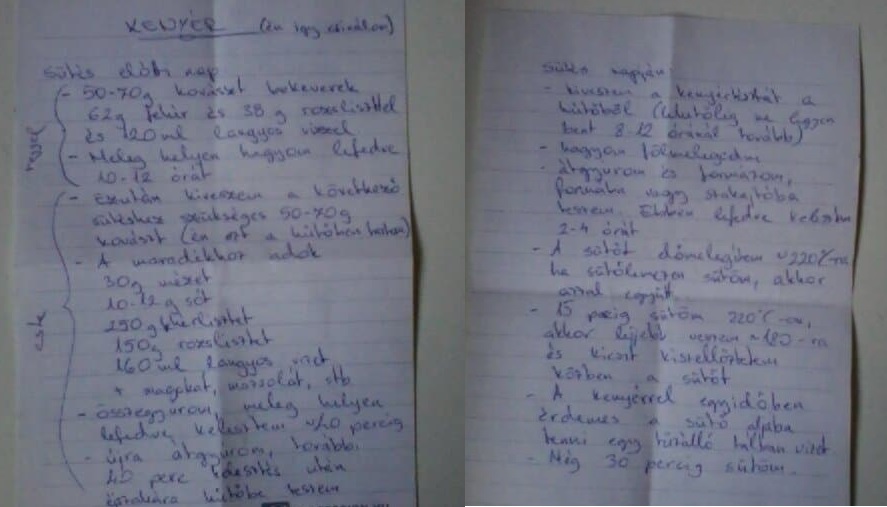 KENYÉR (én így csinálom)
Sütés előtti nap
reggel
- 50-70g kovászt bekeverek
62g fehér és 38 g rozsliszttel
és 120 ml langyos vízzel
- Meleg helyen hagyom lefedve
10-12 órát
este
- Ezután kiveszem a következő
sütéshez szükséges 50-70g
kovászt (én ezt a hűtőben tartom)
- A maradékhoz adok
30g mézet
10-12 g sót
250g fehérlisztet
150g rozslisztet
160 ml langyos vizet
+ magokat, mazsolát, stb
- összegyúrom, meleg helyen
lefedve kelesztem ~40 percig
- újra átgyúrom, további
40 perc kelesztés után
éjszakára hűtőbe teszem
Sütés napján:
- kiveszem a kenyértésztát a
hűtőből (lehetőleg ne legyen
bent 8-12 óránál tovább)
- hagyom fölmelegedni
- átgyúrom és formázom,
formába vagy szakajtóba
teszem. Ebben lefedve kelesztem
2-4 órát
- A sütőt előmelegítem ~220°C-ra
ha sütőlemezen sütöm, akkor
azzal együtt.
- 15 percig sütöm 220°C-on,
akkor lejjebb veszem ~180-ra
és kicsit kiszellőztetem
közben a sütőt
- A kenyérrel egyidőben
érdemes a sütő aljába
tenni egy tűzálló tálban vizet.
- Még 30 percig sütöm.